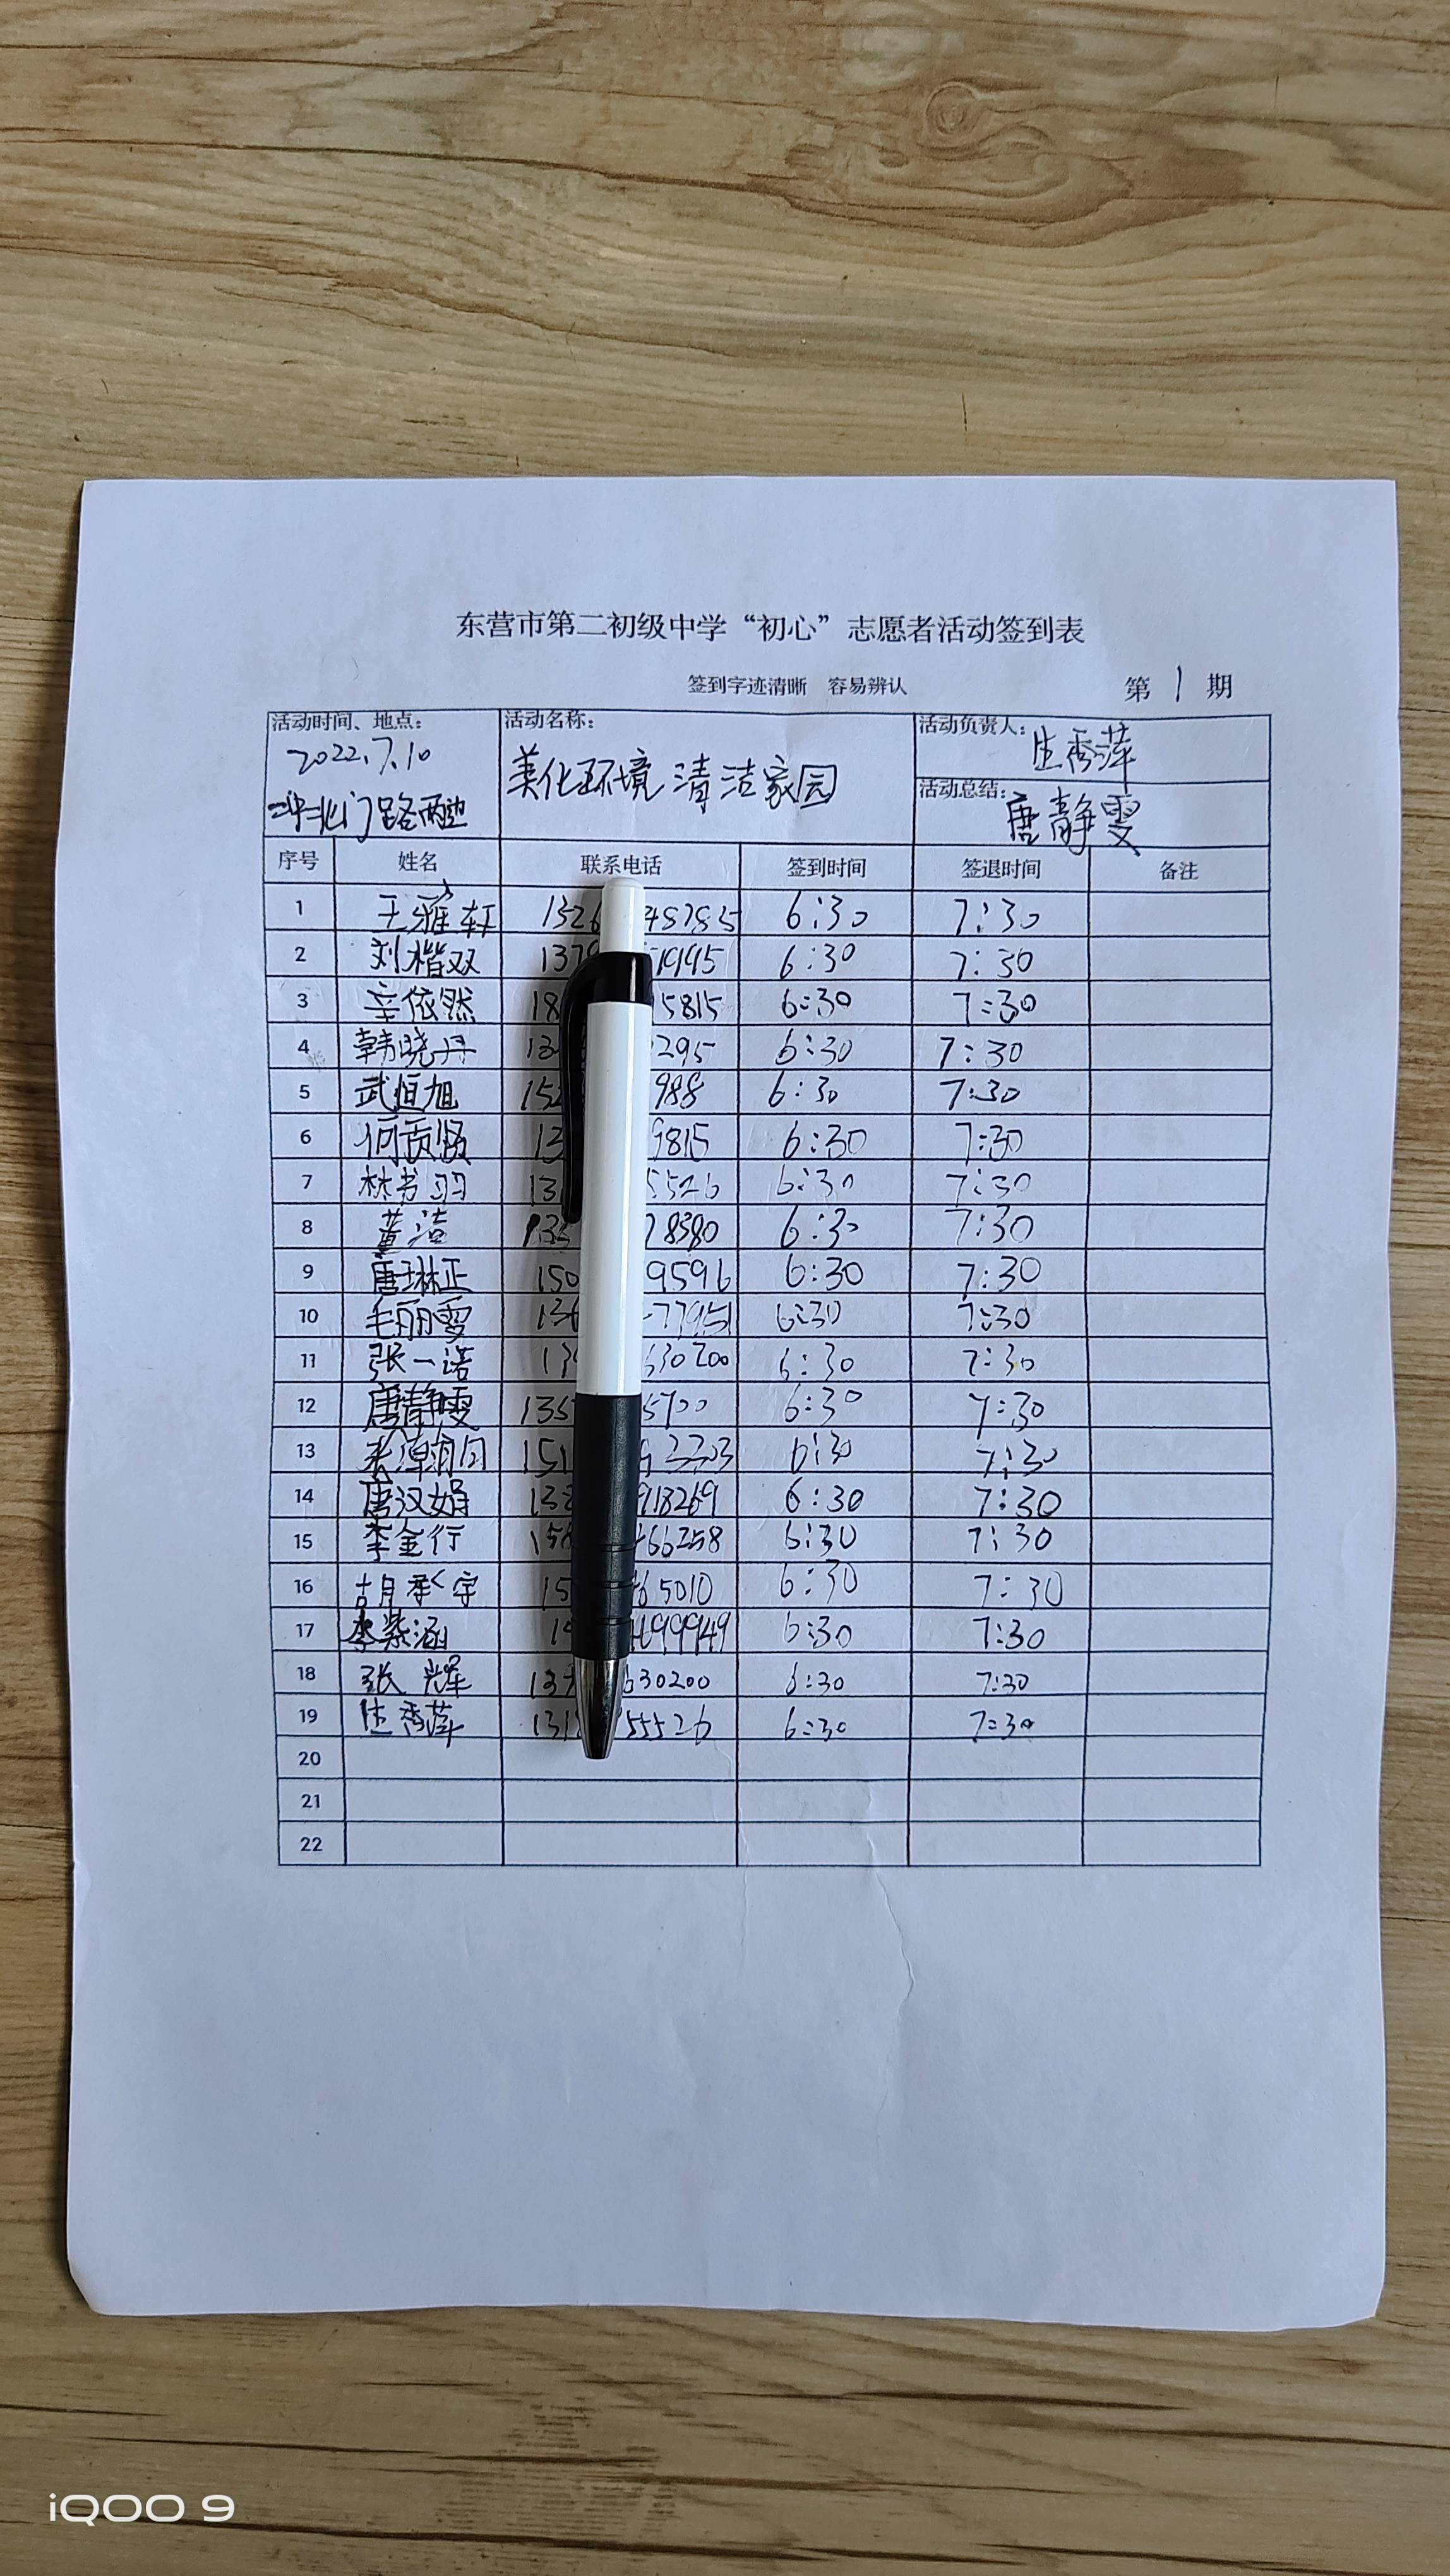 东营市第二初级中学“初心”志愿者活动签到表
签到字迹清晰 容易辨认 第 1 期
活动时间、地点: 活动名称: 活动负责人: 生秀萍
2022.7.10
北门路两边 美化环境 清洁家园
活动总结: 唐静雯
序号 姓名 联系电话 签到时间 签退时间 备注
1 王雅轩 1326 6:30 7:30
2 刘楷双 137 19195 6:30 7:30
3 辛依然 18 5815 6:30 7:30
4 韩晓丹 295 6:30 7:30
5 武恒旭 15 988 6:30 7:30
6 何贡贤 13 9815 6:30 7:30
7 林书羽 13 5526 6:30 7:30
8 董洁 78380 6:30 7:30
9 唐琳正 150 9596 6:30 7:30
10 毛丽雯 136 77951 6:30 7:30
11 张一诺 630200 6:30 7:30
12 唐静雯 135 5700 6:30 7:30
13 151 3303 6:30 7:30
14 唐汉娟 138 918269 6:30 7:30
15 李金行 15 66258 6:30 7:30
16 胡承宇 15 65010 6:30 7:30
17 李紫涵 99949 6:30 7:30
18 张辉 137 630200 6:30 7:30
19 生秀萍 131 55526 6:30 7:30
20
21
22
iQOO 9